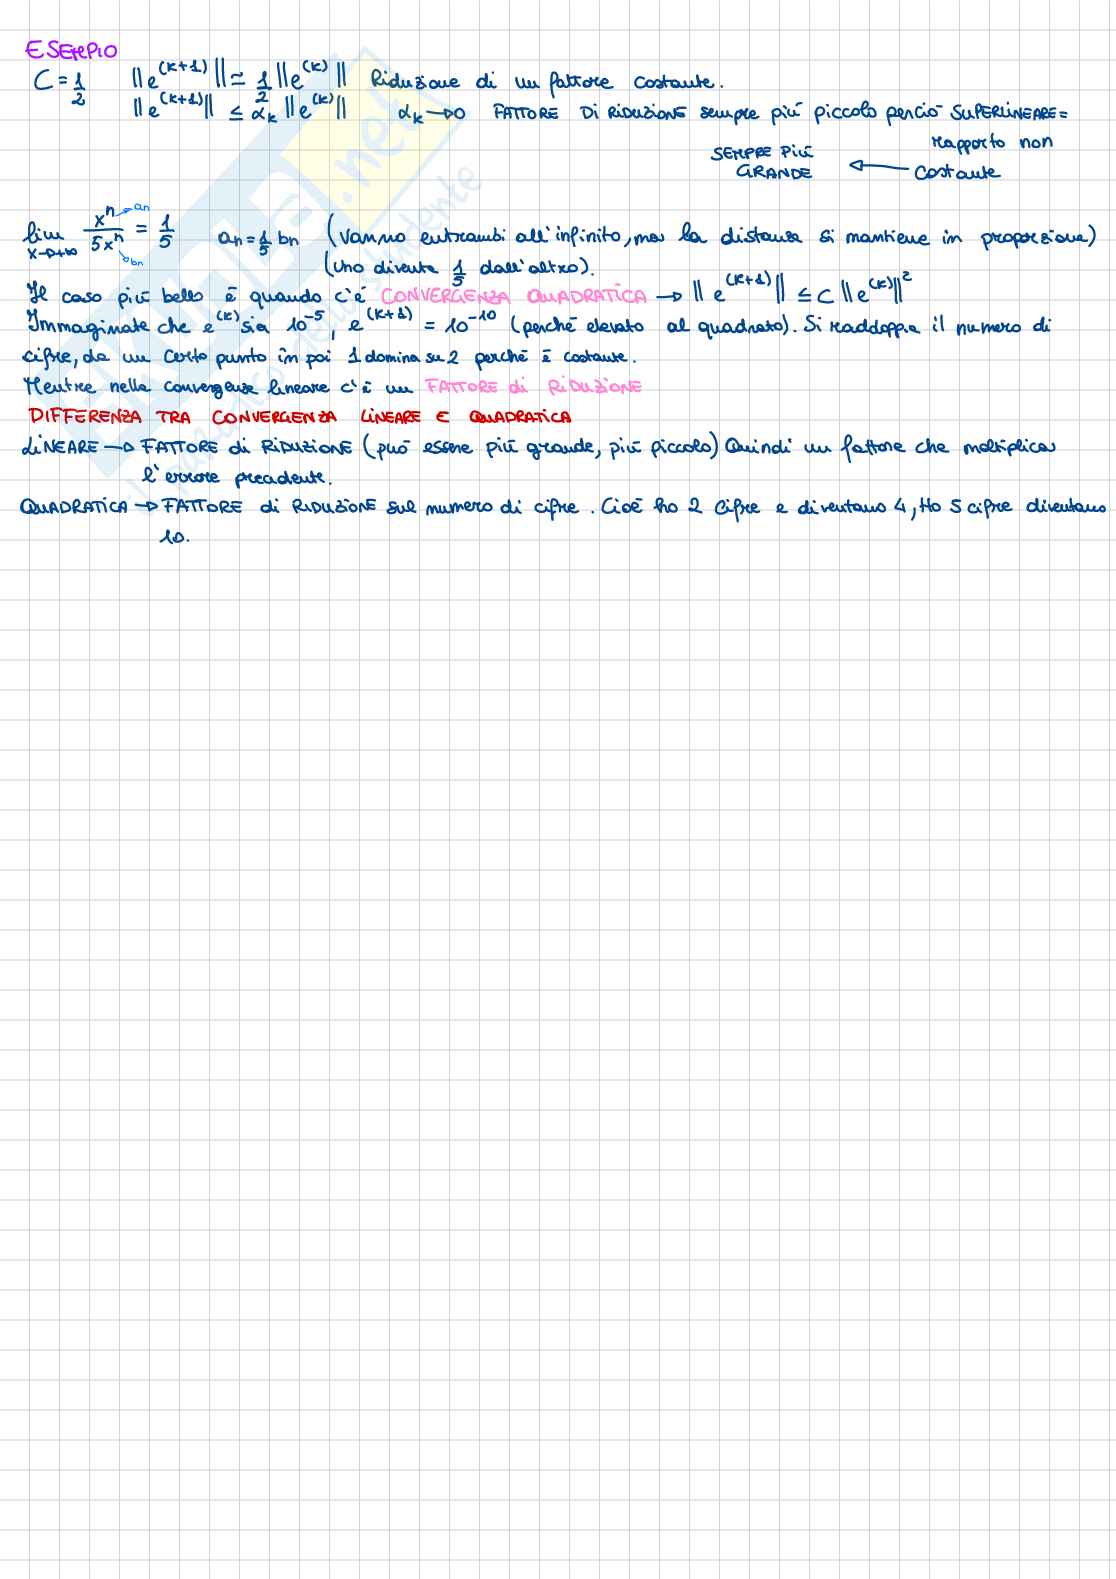 ESEMPIO
C = 1/2 ||e^(k+1)|| ≃ 1/2 ||e^(k)|| Riduzione di un fattore costante.
||e^(k+1)|| ≤ α_k ||e^(k)|| α_k → 0 FATTORE DI RIDUZIONE sempre più piccolo perciò SUPERLINEARE =
rapporto non
SEMPRE PIÙ
GRANDE ← costante
lim x→+∞ x^n/5x^n = 1/5 an = 1/5 bn (Vanno entrambi all'infinito, ma la distanza si mantiene in proporzione)
an
bn
(Uno diventa 1/5 dall'altro).
Il caso più bello è quando c'è CONVERGENZA QUADRATICA → ||e^(k+1)|| ≤ C ||e^(k)||²
Immaginate che e^(k) sia 10^-5, e^(k+1) = 10^-10 (perché elevato al quadrato). Si raddoppia il numero di
cifre, da un certo punto in poi 1 domina su 2 perché è costante.
Mentre nella convergenza lineare c'è un FATTORE di RIDUZIONE
DIFFERENZA TRA CONVERGENZA LINEARE E QUADRATICA
LINEARE → FATTORE di RIDUZIONE (può essere più grande, più piccolo) Quindi un fattore che moltiplica
l'errore precedente.
QUADRATICA → FATTORE di RIDUZIONE sul numero di cifre. Cioè ho 2 cifre e diventano 4, Ho 5 cifre diventano
10.